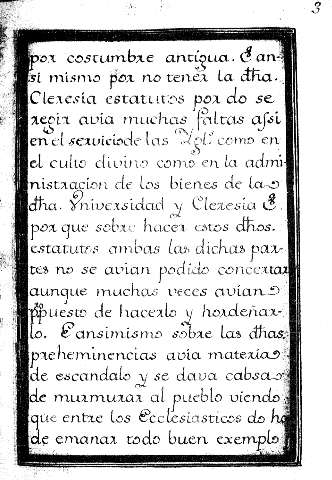 3
por costumbre antigua. E an-
si mismo por no tener la dha.
Cleresia estatutos por do se
regir avia muchas faltas assi
en el servicio de las Ygl.s como en
el culto divino como en la admi-
nistracion de los bienes de la
dha. Vniversidad y Cleresia E
por que sobre hacer estos dhos.
estatutos ambas las dichas par-
tes no se avian podido concertar
aunque muchas veces avian
ppuesto de hacerlo y hordeñar-
lo. E ansimismo sobre las dhas
preheminencias avia materia
de escandalo y se dava cabsa
de murmurar al pueblo viendo
que entre los Ecclesiasticos do ha
de emanar todo buen exemplo